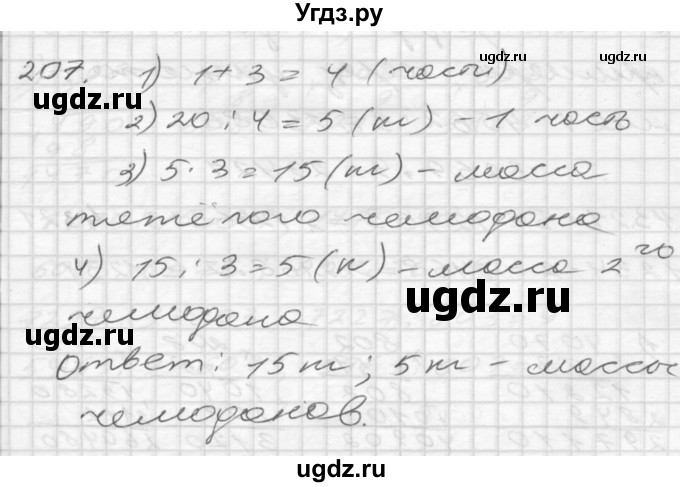 Угдз.ру
207. 1) 1 + 3 = 4 (части)
2) 20 : 4 = 5 (т) - 1 часть
3) 5 · 3 = 15 (т) - масса
тяжёлого чемодана
4) 15 : 3 = 5 (т) - масса 2го
чемодана
Ответ: 15 т; 5 т - массы
чемоданов.
ugdz.ru
ugdz.ru
ugdz.ru
ugdz.ru
ugdz.ru
ugdz.ru
ugdz.ru
ugdz.ru